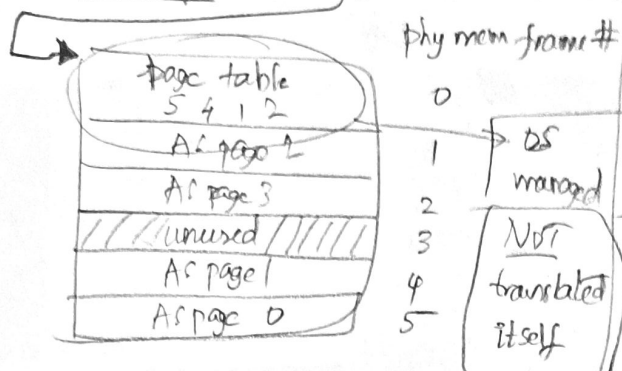 phy mem frame #
page table
5 4 1 2
0
AS page 2
1
AS page 3
2
unused
3
AS page 1
4
AS page 0
5
OS
managed
NOT
translated
itself